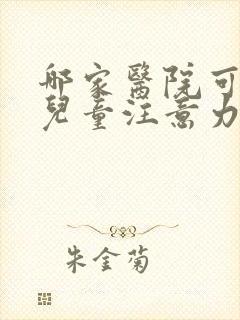 哪家醫院可
兒童注意力
朱金菊